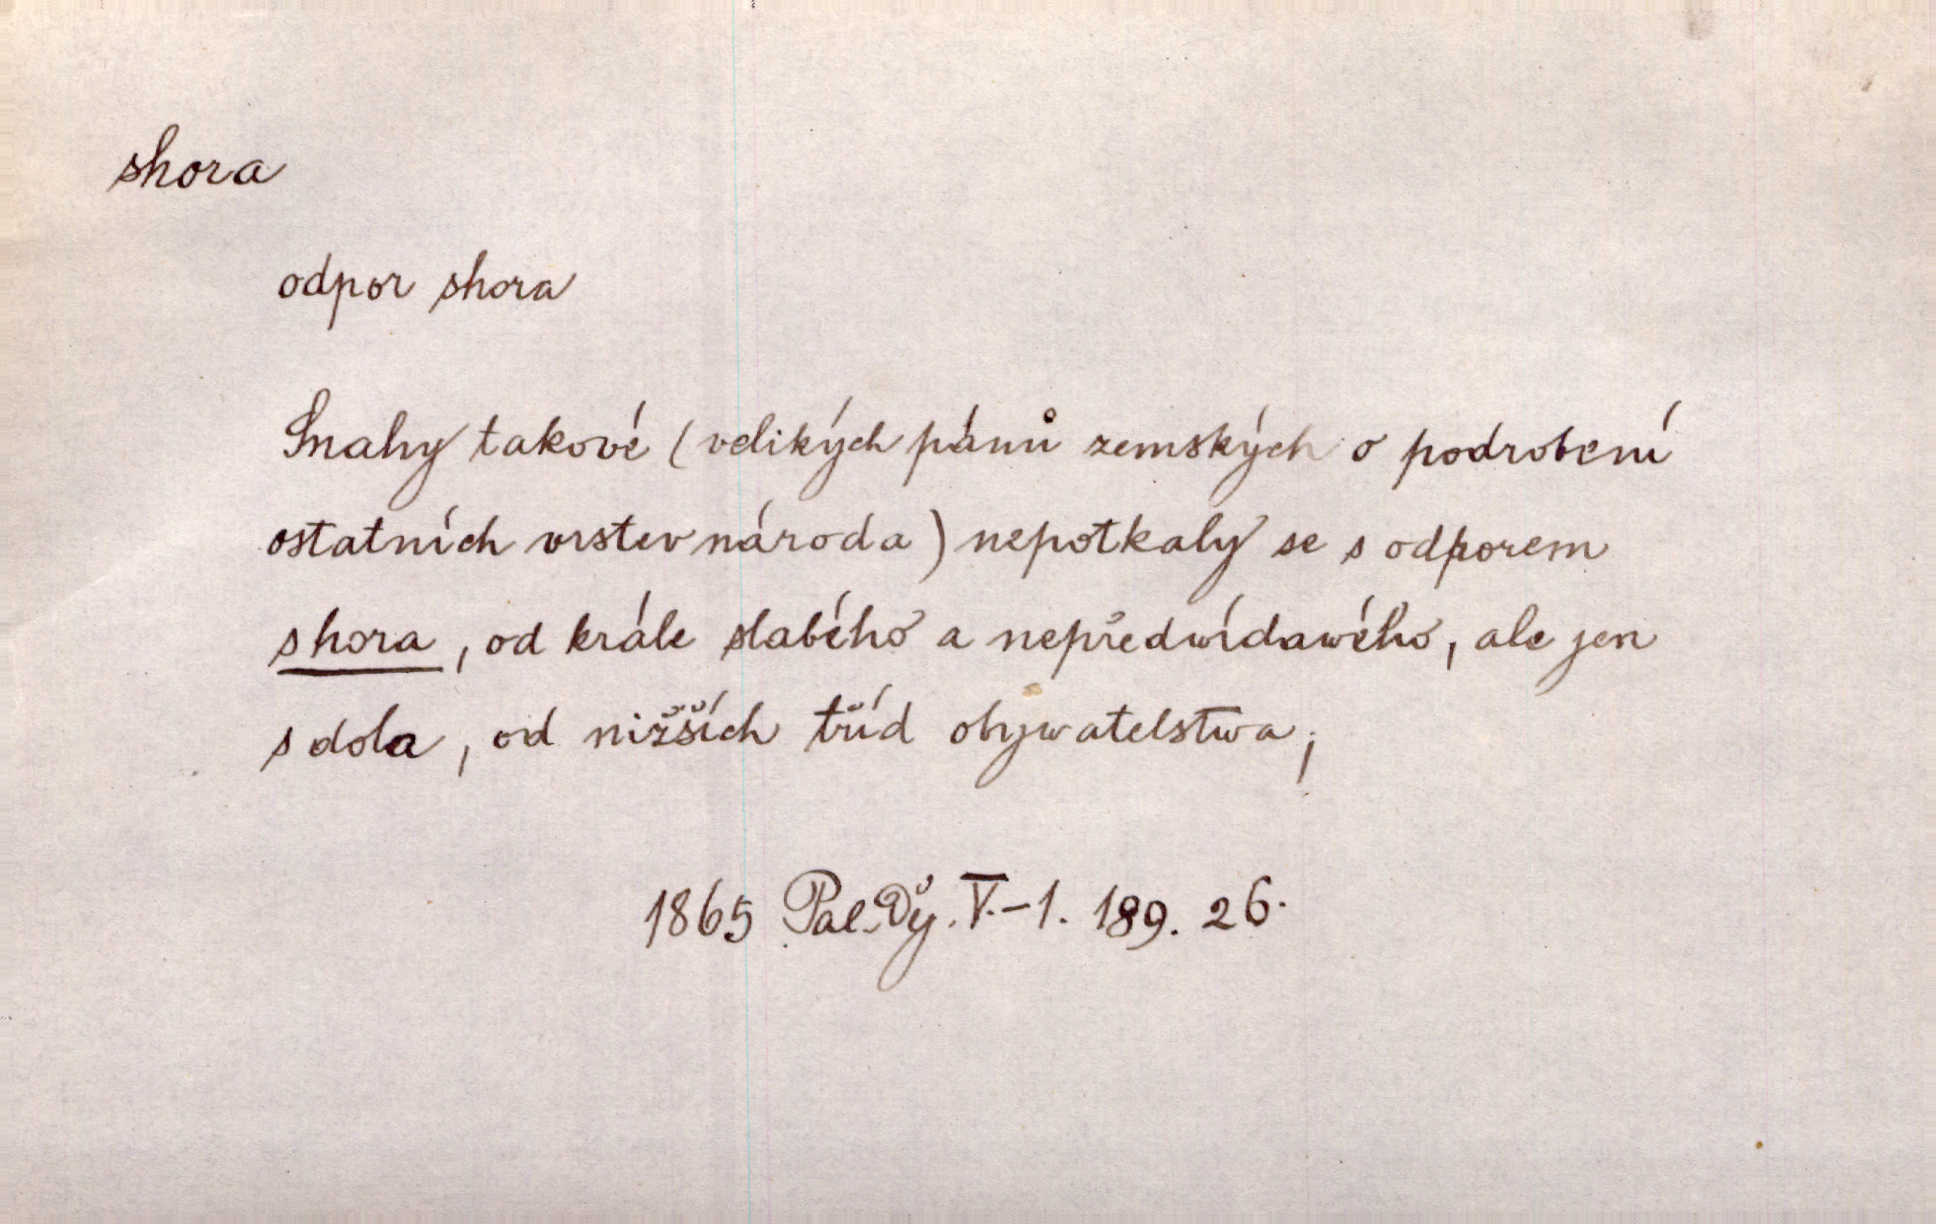 shora
odpor shora
Snahy takové (velikých pánů zemských o podrobení
ostatních vrstev národa) nepotkaly se s odporem
shora, od krále slabého a nepředwídawého, ale jen
s dola, od nižších tříd obywatelstwa;
1865 Pal. Děj. V.-1. 189. 26.